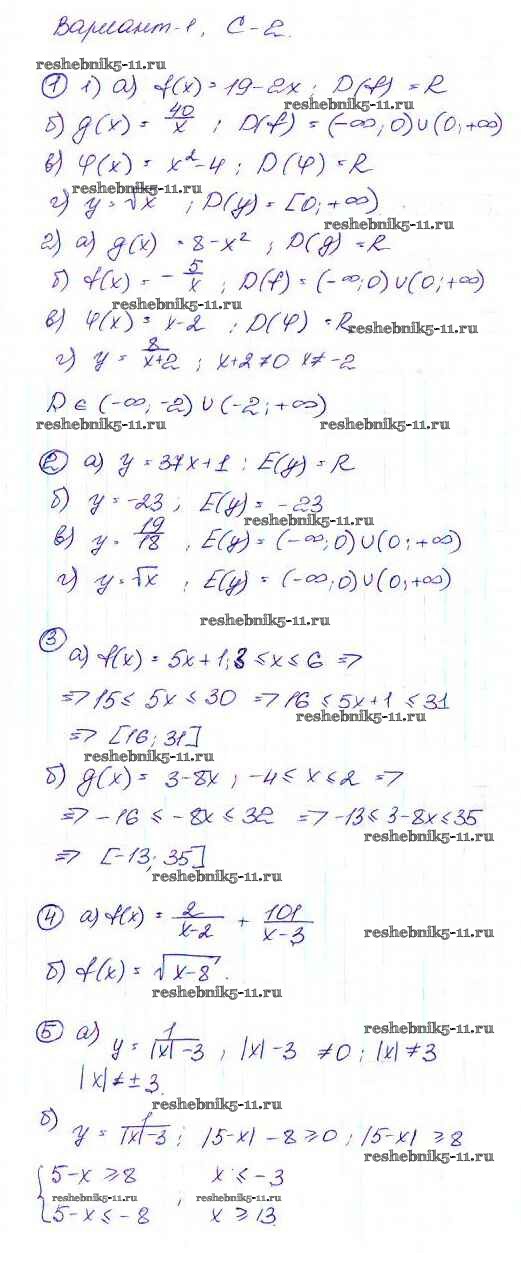 Вариант-1, С-2.
reshebnik5-11.ru
① 1) а) f(x) = 19-2x ; D(f) = R
reshebnik5-11.ru
б) g(x) = 40/x ; D(f) = (-∞; 0)∪(0; +∞)
в) φ(x) = x²-4 ; D(φ) = R
reshebnik5-11.ru
г) y = √x ; D(y) = [0; +∞)
reshebnik5-11.ru
2) а) g(x) = 8-x² ; D(g) = R
б) f(x) = -5/x ; D(f) = (-∞; 0)∪(0; +∞)
reshebnik5-11.ru
в) φ(x) = x-2 ; D(φ) = R
reshebnik5-11.ru
г) y = 8/(x+2) ; x+2≠0 x≠-2
D ∈ (-∞; -2) ∪ (-2; +∞)
reshebnik5-11.ru reshebnik5-11.ru
② а) y = 37x+1 ; E(y) = R
б) y = -23 ; E(y) = -23
reshebnik5-11.ru
в) y = 19/18 , E(y) = (-∞; 0)∪(0; +∞)
г) y = √x , E(y) = (-∞; 0)∪(0; +∞)
reshebnik5-11.ru
③
а) f(x) = 5x+1; 3 ≤ x ≤ 6 ⇒
⇒ 15 ≤ 5x ≤ 30 ⇒ 16 ≤ 5x+1 ≤ 31
reshebnik5-11.ru
⇒ [16; 31]
reshebnik5-11.ru
б) g(x) = 3-8x ; -4 ≤ x ≤ 2 ⇒
⇒ -16 ≤ -8x ≤ 32 ⇒ -13 ≤ 3-8x ≤ 35
reshebnik5-11.ru
⇒ [-13; 35]
reshebnik5-11.ru
④ а) f(x) = 2/(x-2) + 101/(x-3)
reshebnik5-11.ru
б) f(x) = √(x-8).
reshebnik5-11.ru
reshebnik5-11.ru
⑤ а) y = 1/(|x|-3) ; |x|-3 ≠ 0 ; |x| ≠ 3
|x| ≠ ±3.
reshebnik5-11.ru
б) y = 1/(|x|-3) ; |5-x| - 8 ≥ 0 ; |5-x| ≥ 8
reshebnik5-11.ru
{ 5-x ≥ 8 x ≤ -3
reshebnik5-11.ru ; reshebnik5-11.ru
5-x ≤ -8 x ≥ 13.